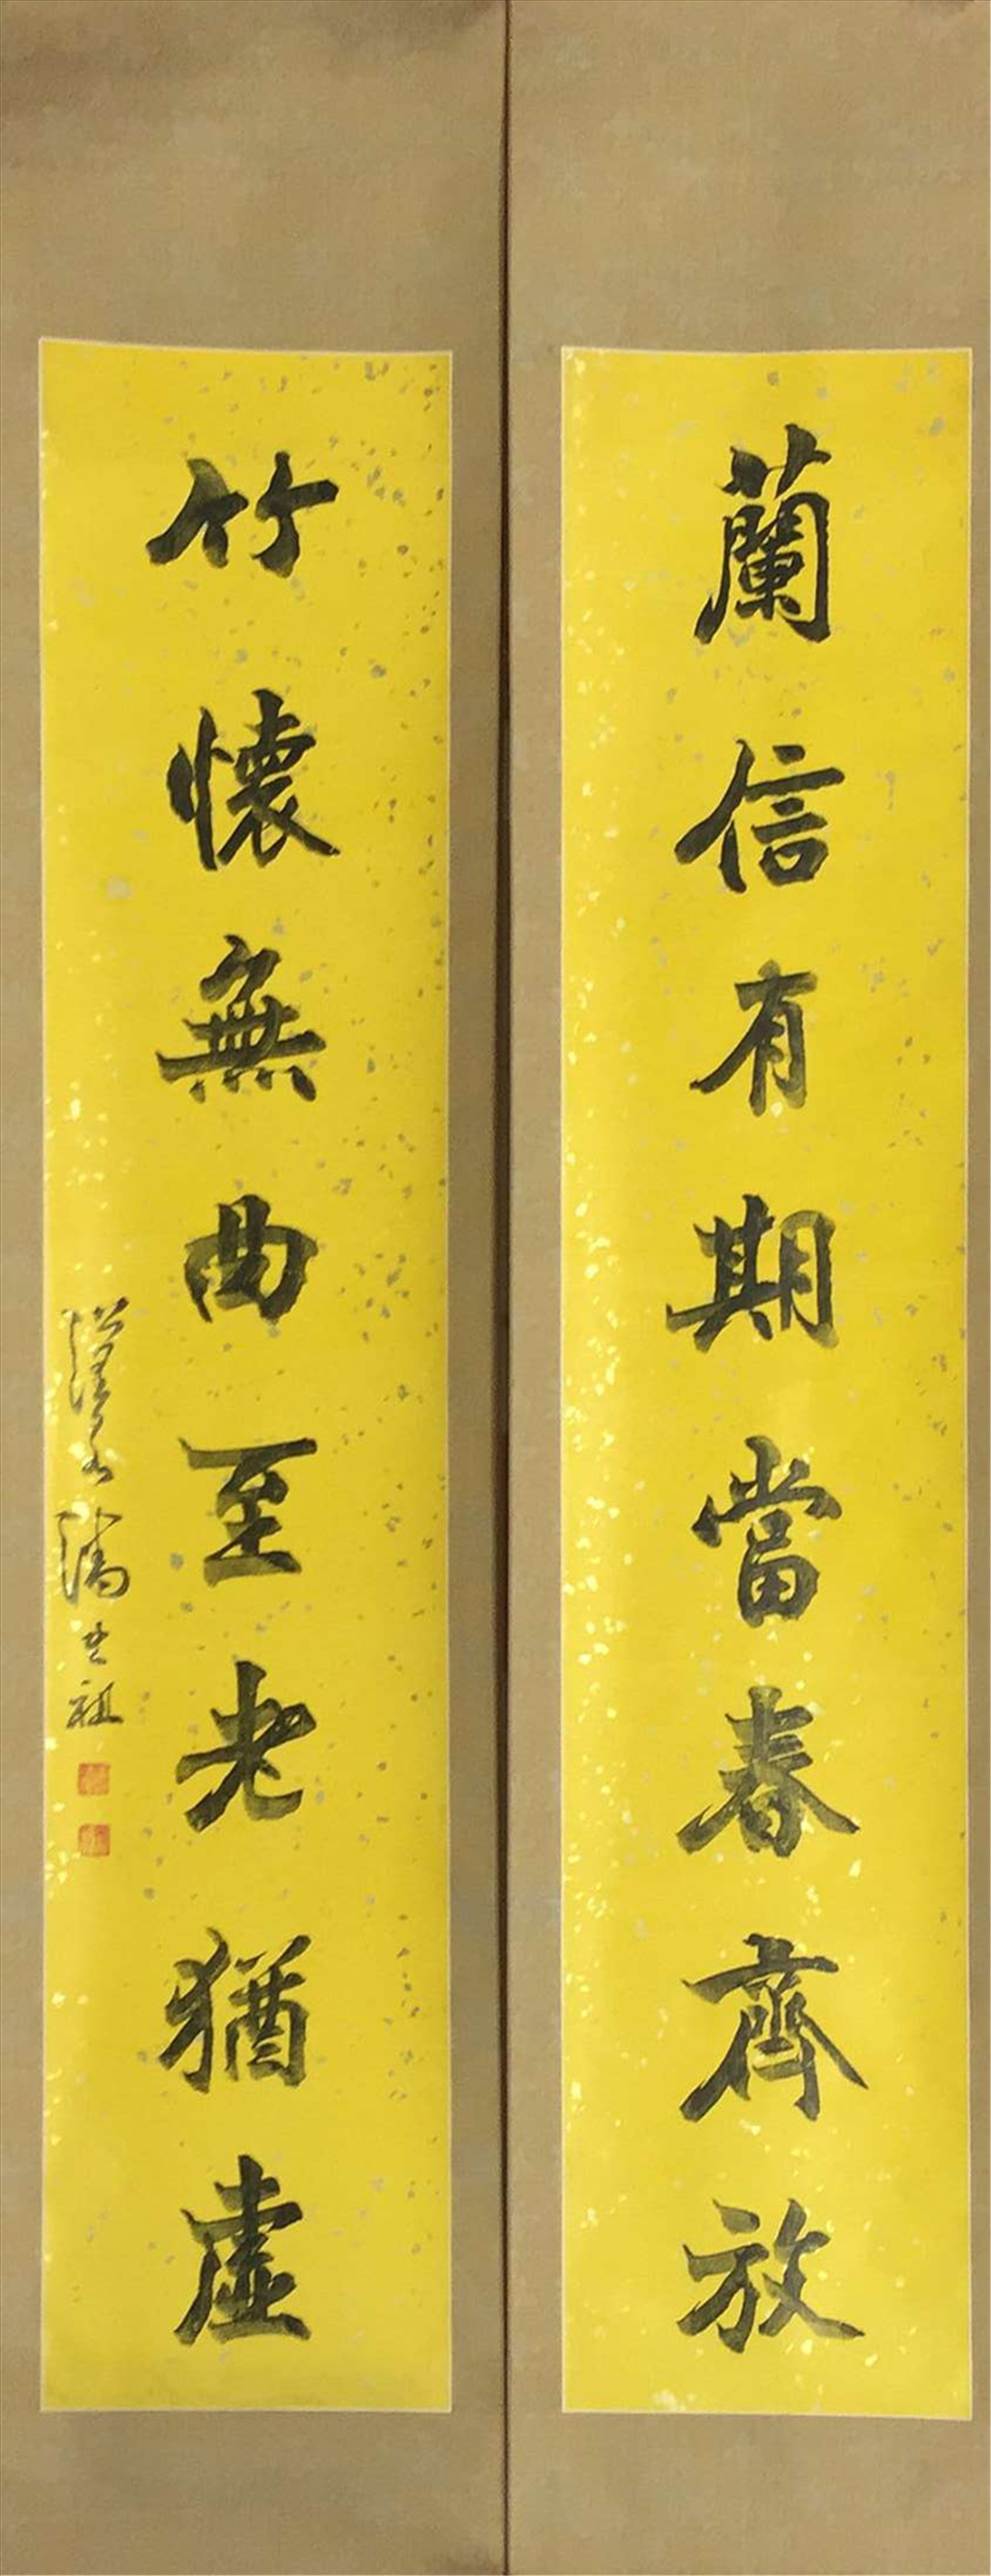 蘭信有期當春齊放
竹懷無曲至老猶虛
祖